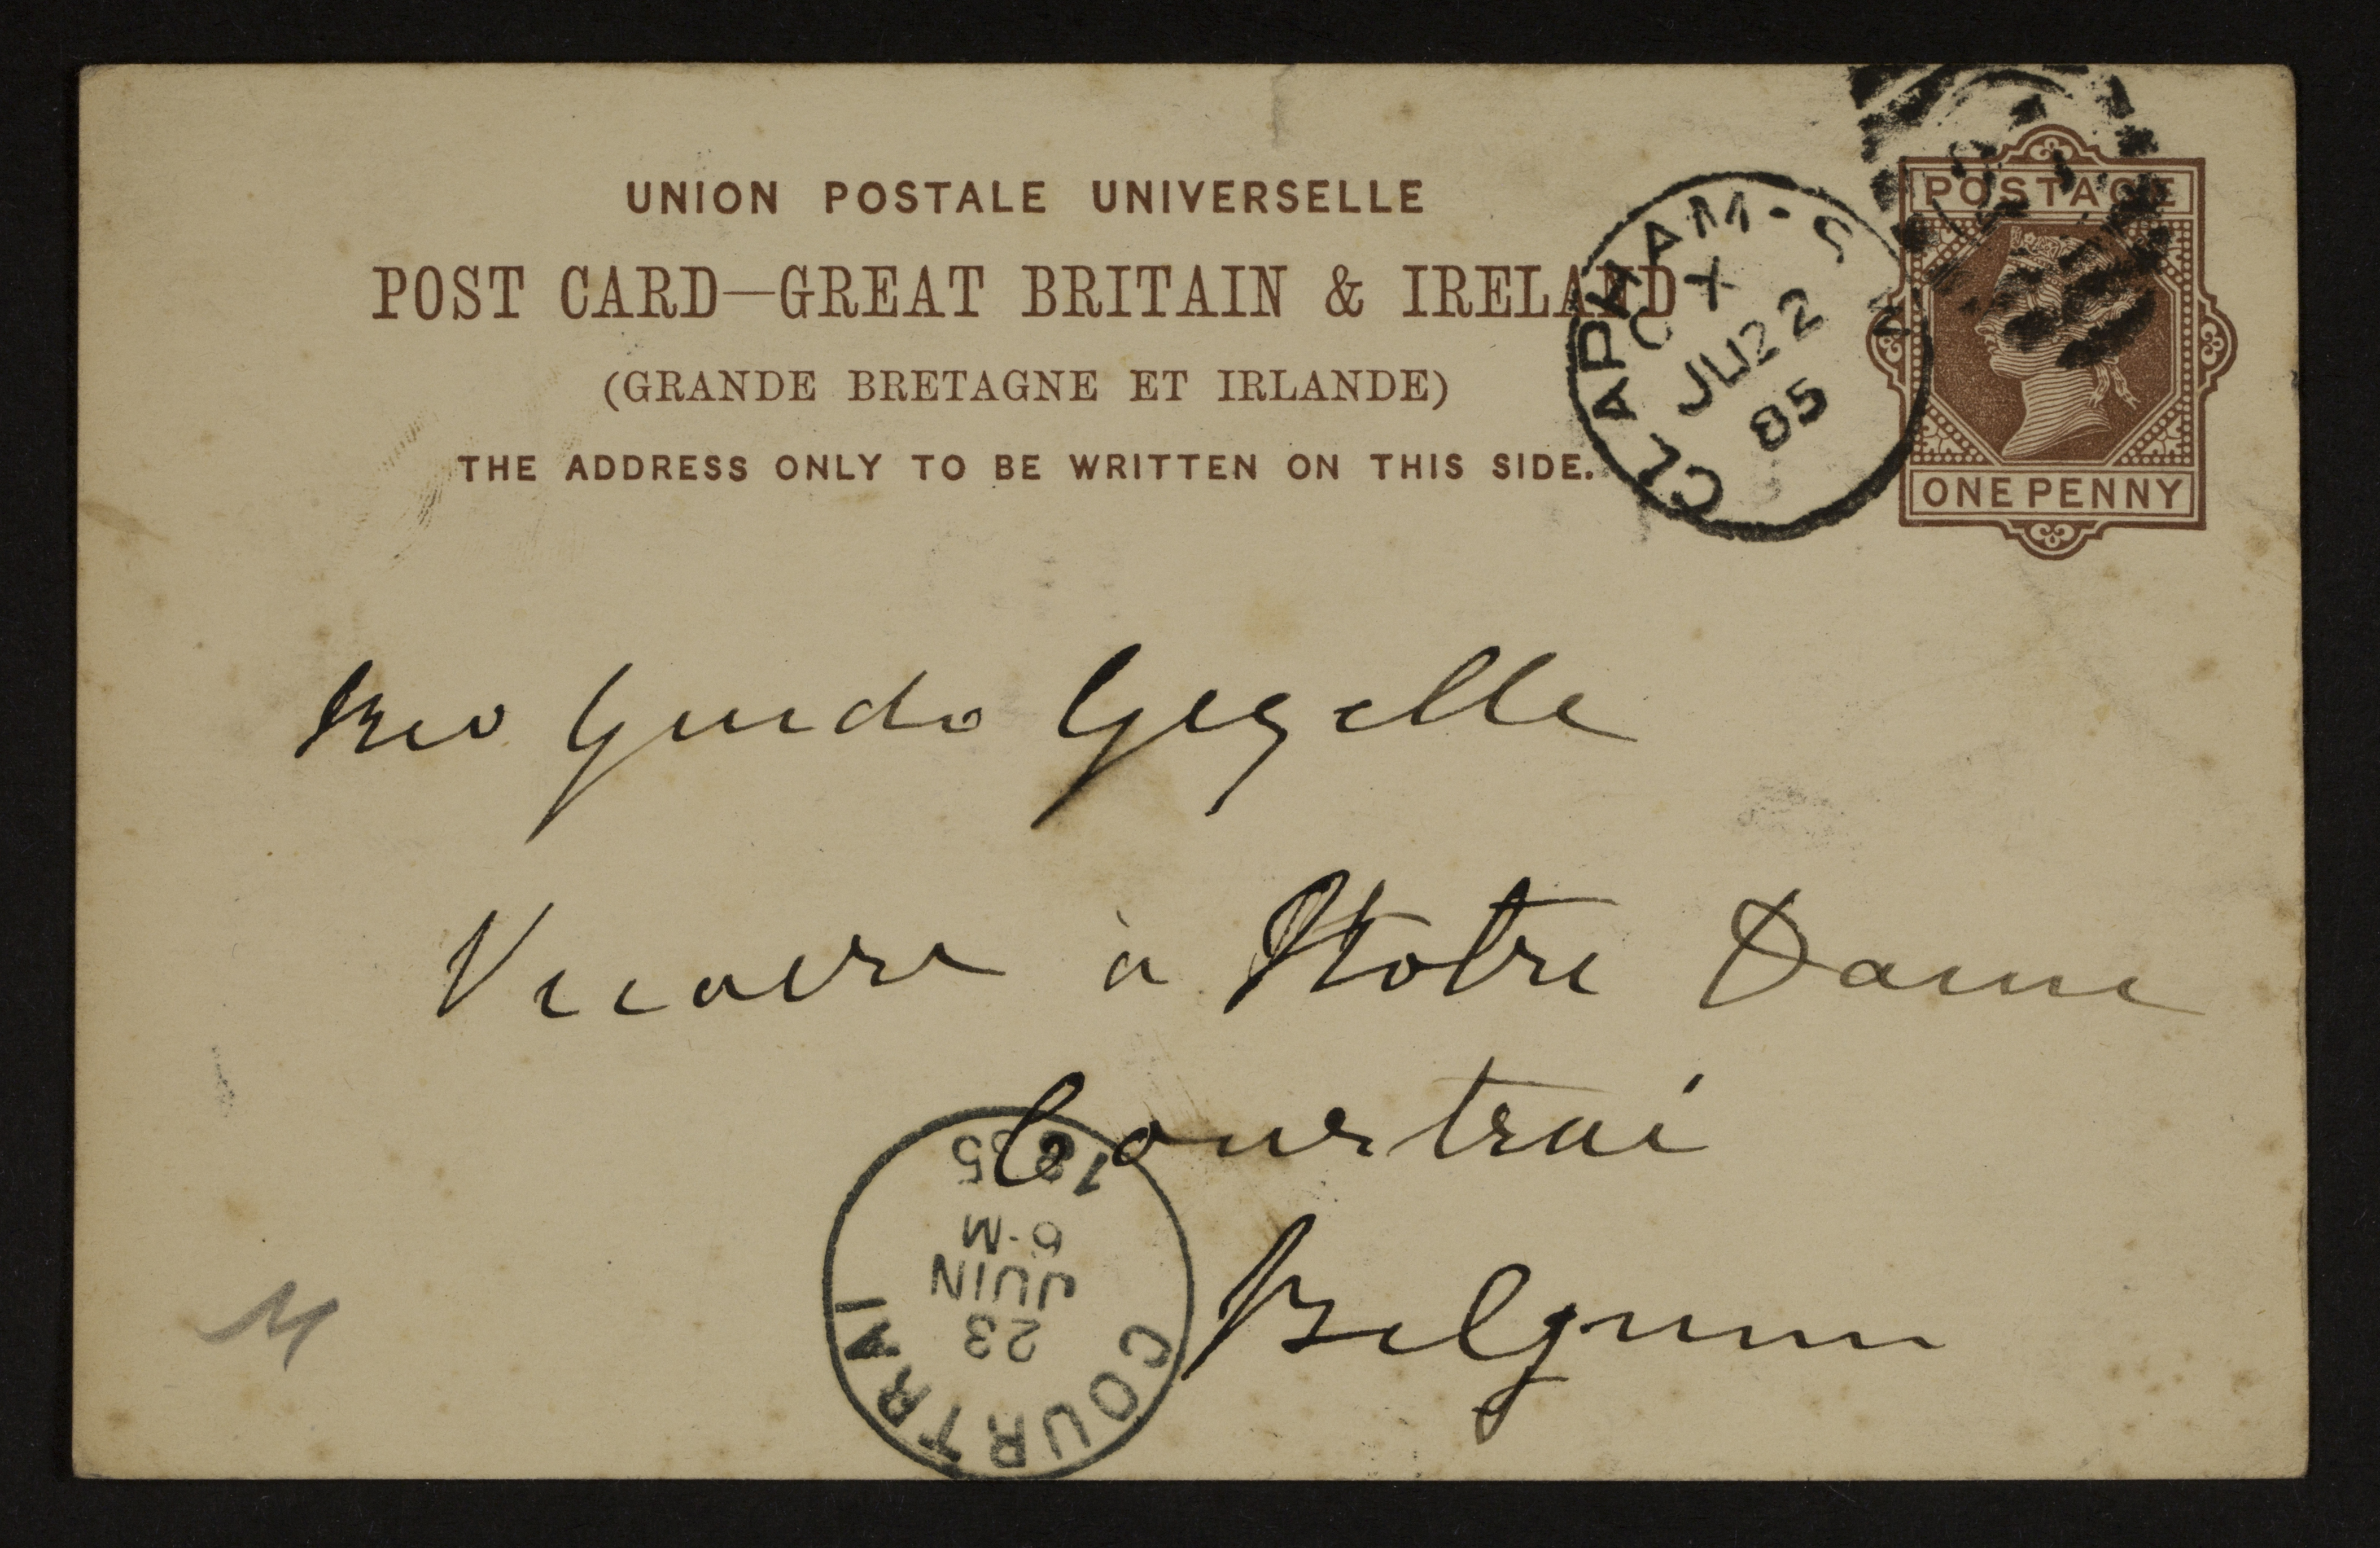 UNION POSTALE UNIVERSELLE
POST CARD—GREAT BRITAIN & IRELAND
(GRANDE BRETAGNE ET IRLANDE)
THE ADDRESS ONLY TO BE WRITTEN ON THIS SIDE.
CLAPHAM-S
X
JU 22
85
POSTAGE
ONE PENNY
Rev Guido Gezelle
Vicaire à Notre Dame
Courtrai
Belgium
COURTRAI
23
JUIN
6-M
1885
M